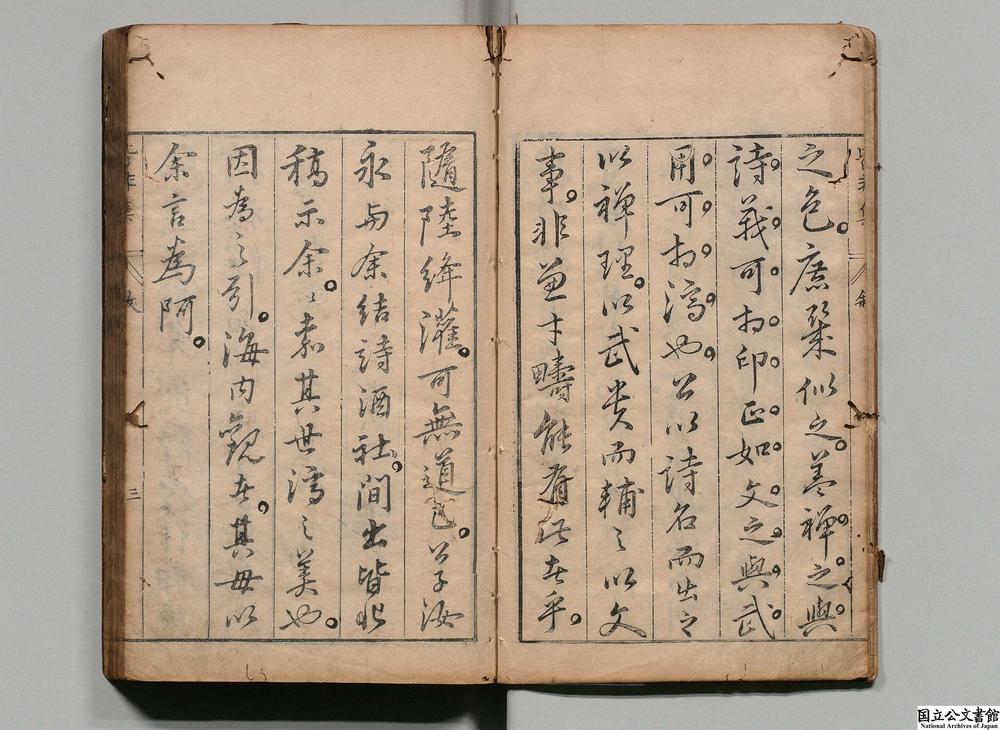 之色。庶幾似之。蓋禪。之。與。
詩。義。可。相。印。正。如。文。之。與。武。
用。可。相。濟。也。公以詩名而出之
以禪理。以武貴而輔之以文
事。非兼才疇能有此者乎。
隨陸絳灌。可無道已。公子汝
永與余結詩酒社。間出皆非
稿示余。余嘉其世濟之美也。
因為之引。海內觀者。其毋以
余言為阿。
皆非集
三
国立公文書館
National Archives of Japan